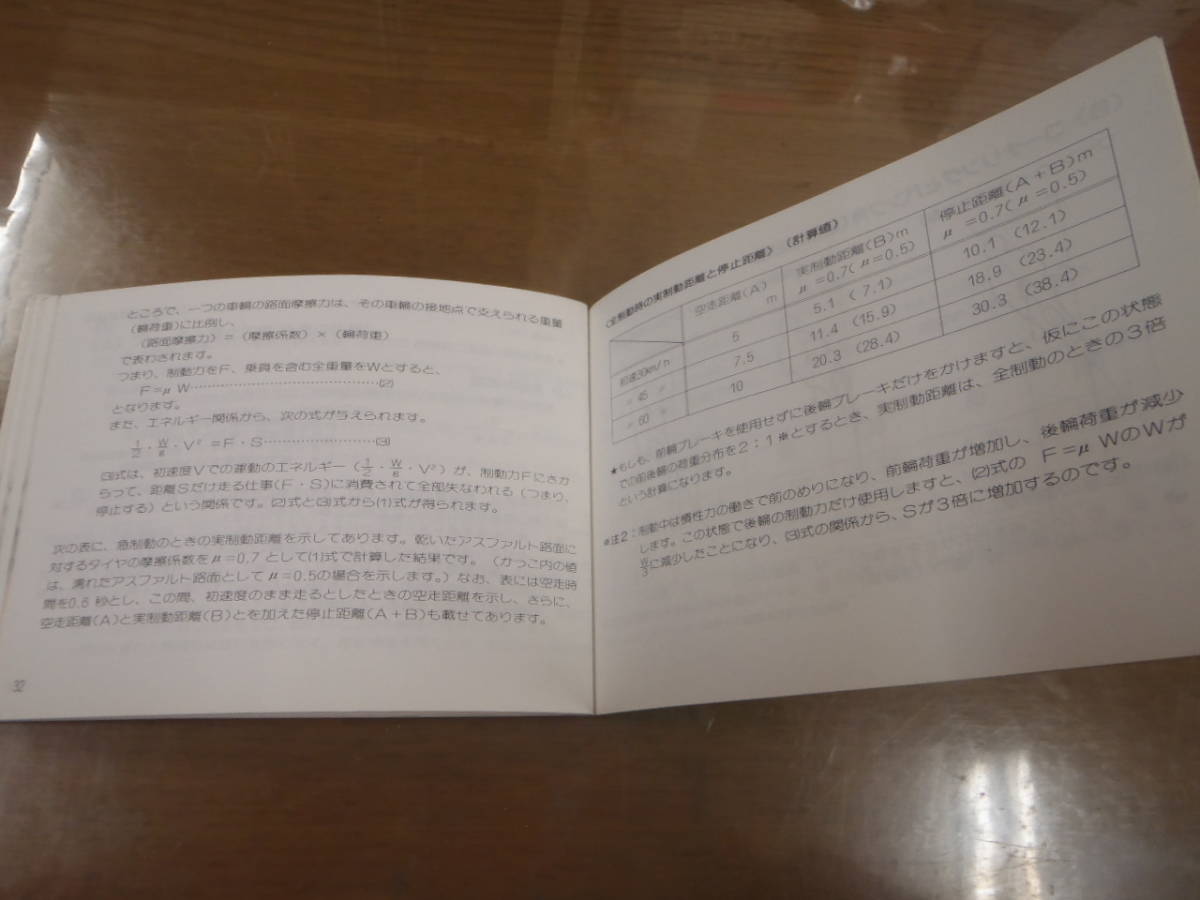 ところで、一つの車輪の路面摩擦力は、その車輪の接地点で支えられる重量
(輪荷重)に比例し、
(路面摩擦力)=(摩擦係数)×(輪荷重)
で表わされます。
つまり、制動力をF、乗員を含む全重量をWとすると、
F=μW……………………………………(2)
となります。
また、エネルギー関係から、次の式が与えられます。
1/2・W/g・V²=F・S……………………(3)
(3)式は、初速度Vでの運動のエネルギー(1/2・W/g・V²)が、制動力Fにさか
らって、距離Sだけ走る仕事(F・S)に消費されて全部失なわれる(つまり、
停止する)という関係です。(2)式と(3)式から(1)式が得られます。
次の表に、急制動のときの実制動距離を示してあります。乾いたアスファルト路面に
対するタイヤの摩擦係数をμ=0.7として(1)式で計算した結果です。(かっこ内の値
は、濡れたアスファルト路面としてμ=0.5の場合を示します。)なお、表には空走時
間を0.6秒とし、この間、初速度のまま走るとしたときの空走距離を示し、さらに、
空走距離(A)と実制動距離(B)とを加えた停止距離(A+B)も載せてあります。
32
〈全制動時の実制動距離と停止距離〉(計算値)
空走距離(A) m
実制動距離(B)m μ=0.7(μ=0.5)
停止距離(A+B)m μ=0.7(μ=0.5)
初速30km/h 5 5.1 (7.1) 10.1 (12.1)
〃 45 〃 7.5 11.4 (15.9) 18.9 (23.4)
〃 60 〃 10 20.3 (28.4) 30.3 (38.4)
★もしも、前輪ブレーキを使用せずに後輪ブレーキだけをかけますと、仮にこの状態
での前後輪の荷重分布を2:1※とするとき、実制動距離は、全制動のときの3倍
という計算になります。
※注2:制動中は慣性力の働きで前のめりになり、前輪荷重が増加し、後輪荷重が減少
します。この状態で後輪の制動力だけ使用しますと、(2)式の F=μWのWが
W/3に減少したことになり、(3)式の関係から、Sが3倍に増加するのです。